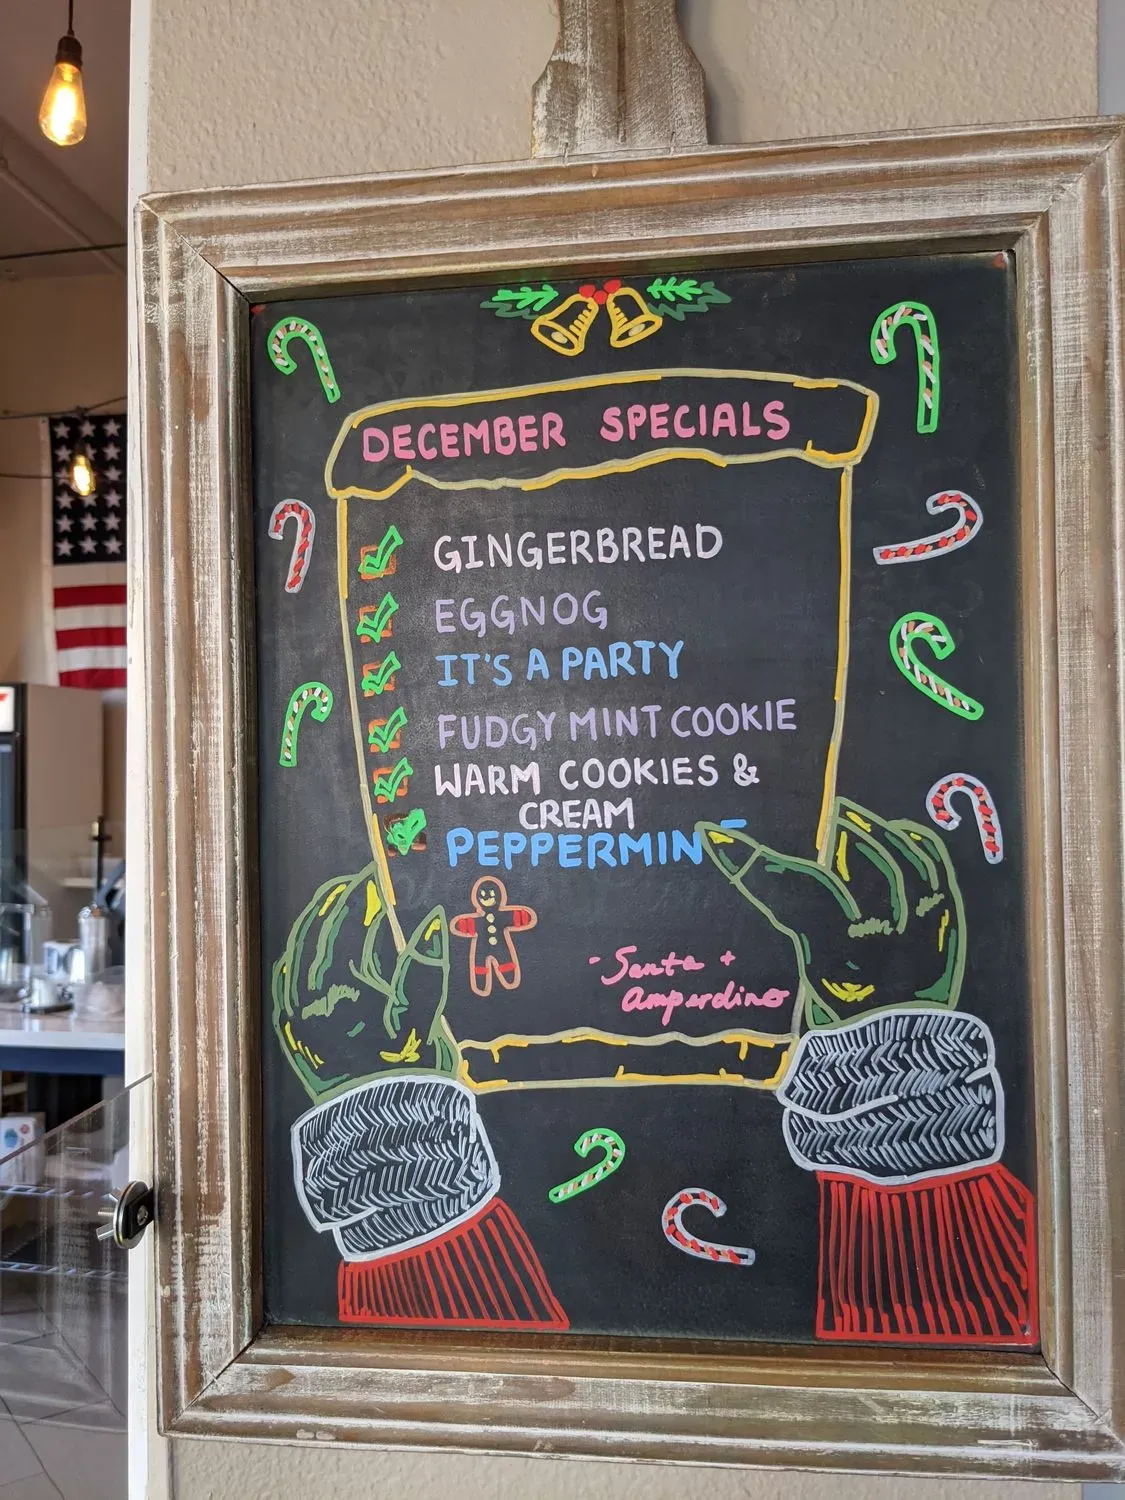 DECEMBER SPECIALS
GINGERBREAD
EGGNOG
IT'S A PARTY
FUDGY MINT COOKIE
WARM COOKIES &
CREAM
PEPPERMINT
- Santa +
Amperdino